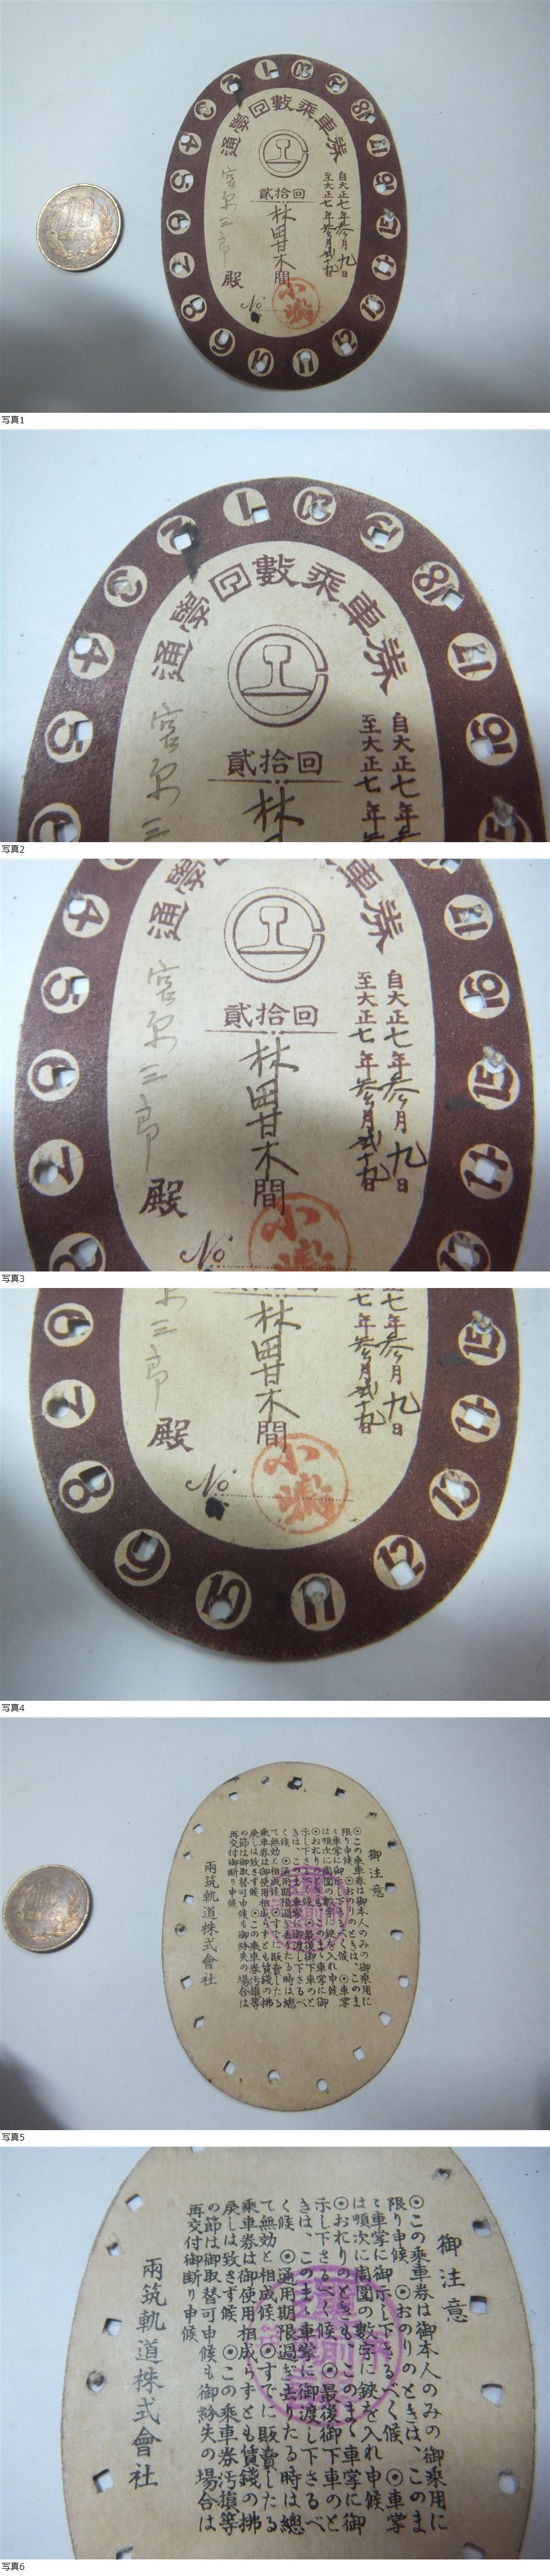 通學回數乘車券
貳拾回
自大正七年参月九日
至大正七年参月貳十九日
林田甘木間
宮原三郎殿
No
1
2
3
4
5
6
7
8
9
10
11
12
13
14
15
16
17
18
19
20
10
写真1
通學回數乘車券
貳拾回
自大正七年
至大正七年
林
宮原三
1
2
3
4
5
6
15
16
17
18
19
20
写真2
貳拾回
自大正七年参月九日
至大正七年参月貳十九日
林田甘木間
宮原三郎殿
No
4
5
6
7
8
13
14
15
16
17
写真3
林田甘木間
殿
No
6
7
8
9
10
11
12
13
14
15
写真4
御注意
◉この乘車券は御本人のみの御乘用に
限り申候 ◉おのりのときは、このま
ゝ車掌に御示し下さるべく候 ◉車掌
は順次に周圍の數字に鋏を入れ申候
◉おれりのときも、このまゝ車掌に御
示し下さるべく候 ◉最後御下車のと
きは、このまゝ車掌に御渡し下さるべ
く候 ◉通用期限過ぎ去りたる時は總
て無効と相成候 ◉すでに販賣したる
乘車券は御使用相成らずとも賃錢の拂
戻しは致さず候 ◉この乘車券汚損等
の節は御取替可申候も御紛失の場合は
再交付御斷り申候
兩筑軌道株式會社
写真5
御注意
◉この乘車券は御本人のみの御乘用に
限り申候 ◉おのりのときは、このま
ゝ車掌に御示し下さるべく候 ◉車掌
は順次に周圍の數字に鋏を入れ申候
◉おれりのときも、このまゝ車掌に御
示し下さるべく候 ◉最後御下車のと
きは、このまゝ車掌に御渡し下さるべ
く候 ◉通用期限過ぎ去りたる時は總
て無効と相成候 ◉すでに販賣したる
乘車券は御使用相成らずとも賃錢の拂
戻しは致さず候 ◉この乘車券汚損等
の節は御取替可申候も御紛失の場合は
再交付御斷り申候
兩筑軌道株式會社
写真6